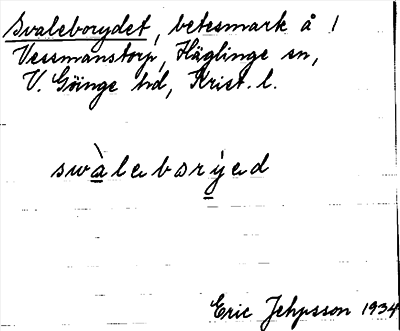 Svaleborydet, betesmark å 1
Vessmanstorp, Häglinge sn,
V. Göinge hd, Krist. l.
swàleborýed
Eric Jehpsson 1934